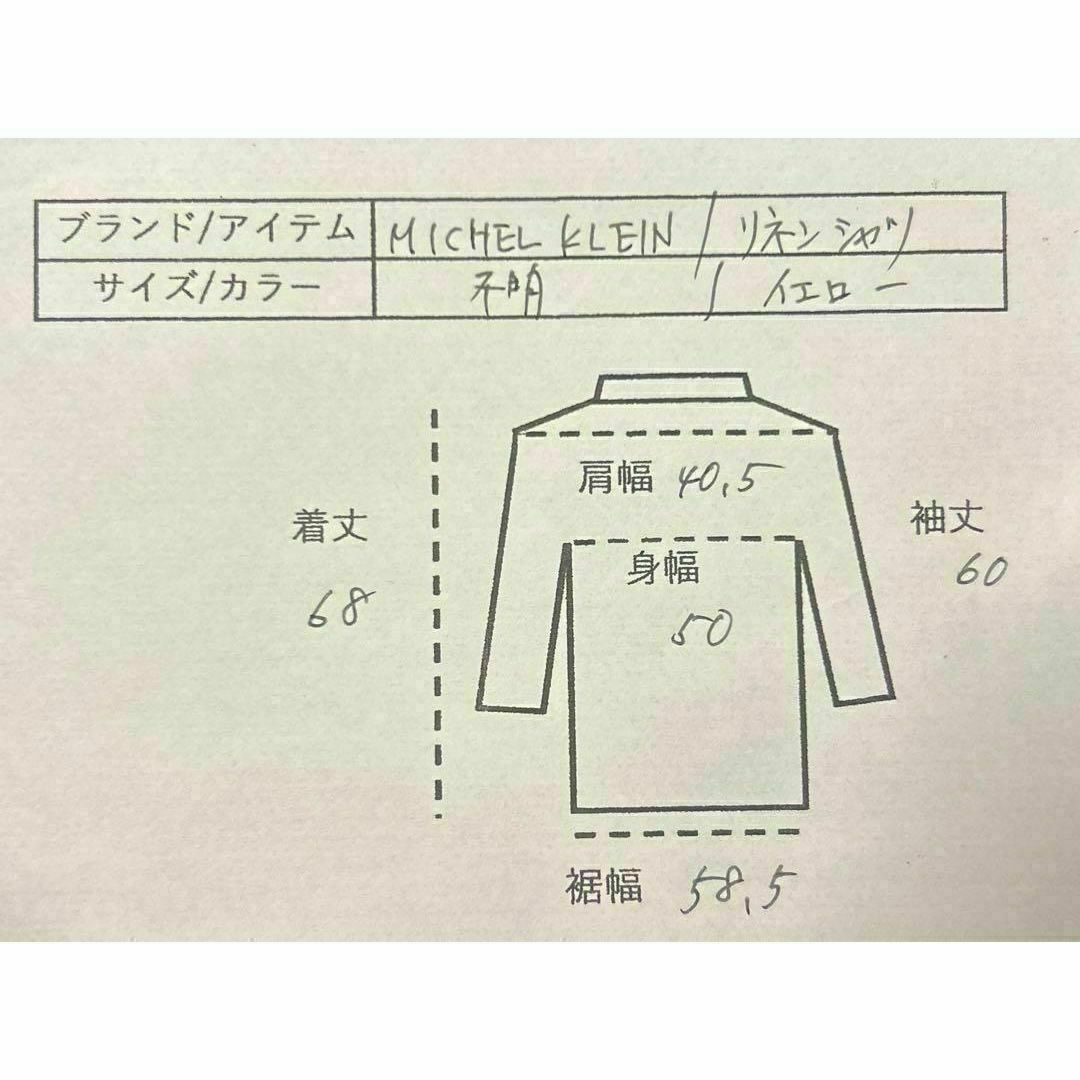 ブランド/アイテム MICHEL KLEIN / リネンシャツ
サイズ/カラー 不明 / イエロー
肩幅 40,5
着丈
68
袖丈
60
身幅
50
裾幅 58,5